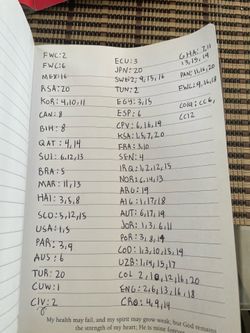 FWC: 2
FWC: 6
MEX: 16
RSA: 20
KOR: 4,10,11
CAN: 8
BIH: 8
QAT: 4,14
SUI: 6,12,13
BRA: 5
MAR: 11,13
HAI: 3,5,8
SCO: 5,12,15
USA: 1,5
PAR: 3,9
AUS: 6
TUR: 20
CUW: 1
CIV: 2
ECU: 3
JPN: 20
SWE: 2,9,15,16
TUN: 2
EGY: 3,15
ESP: 6
CPV: 6,16,19
KSA: 1,5,7,20
FRA: 5,10
SEN: 4
IRQ: 1,2,12,15
NOR: 6,14,13
ARG: 19
ALG: 1,17,18
AUT: 6,17,19
JOR: 1,3,6,11
POR: 3,8,19
COD: 1,3,10,15,19
UZB: 1,14,15,17
COL 2,10,12,16,20
ENG: 2,6,13,16,18
CRO: 4,9,14
GHA: 2,11
13,15,19
PAN: 11,16,20
FWC: 9,16,18
COLA: CC6,
CC12
My health may fail, and my spirit may grow weak, but God remains
the strength of my heart; He is mine forever.